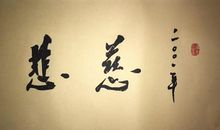 二〇〇一年
慈悲